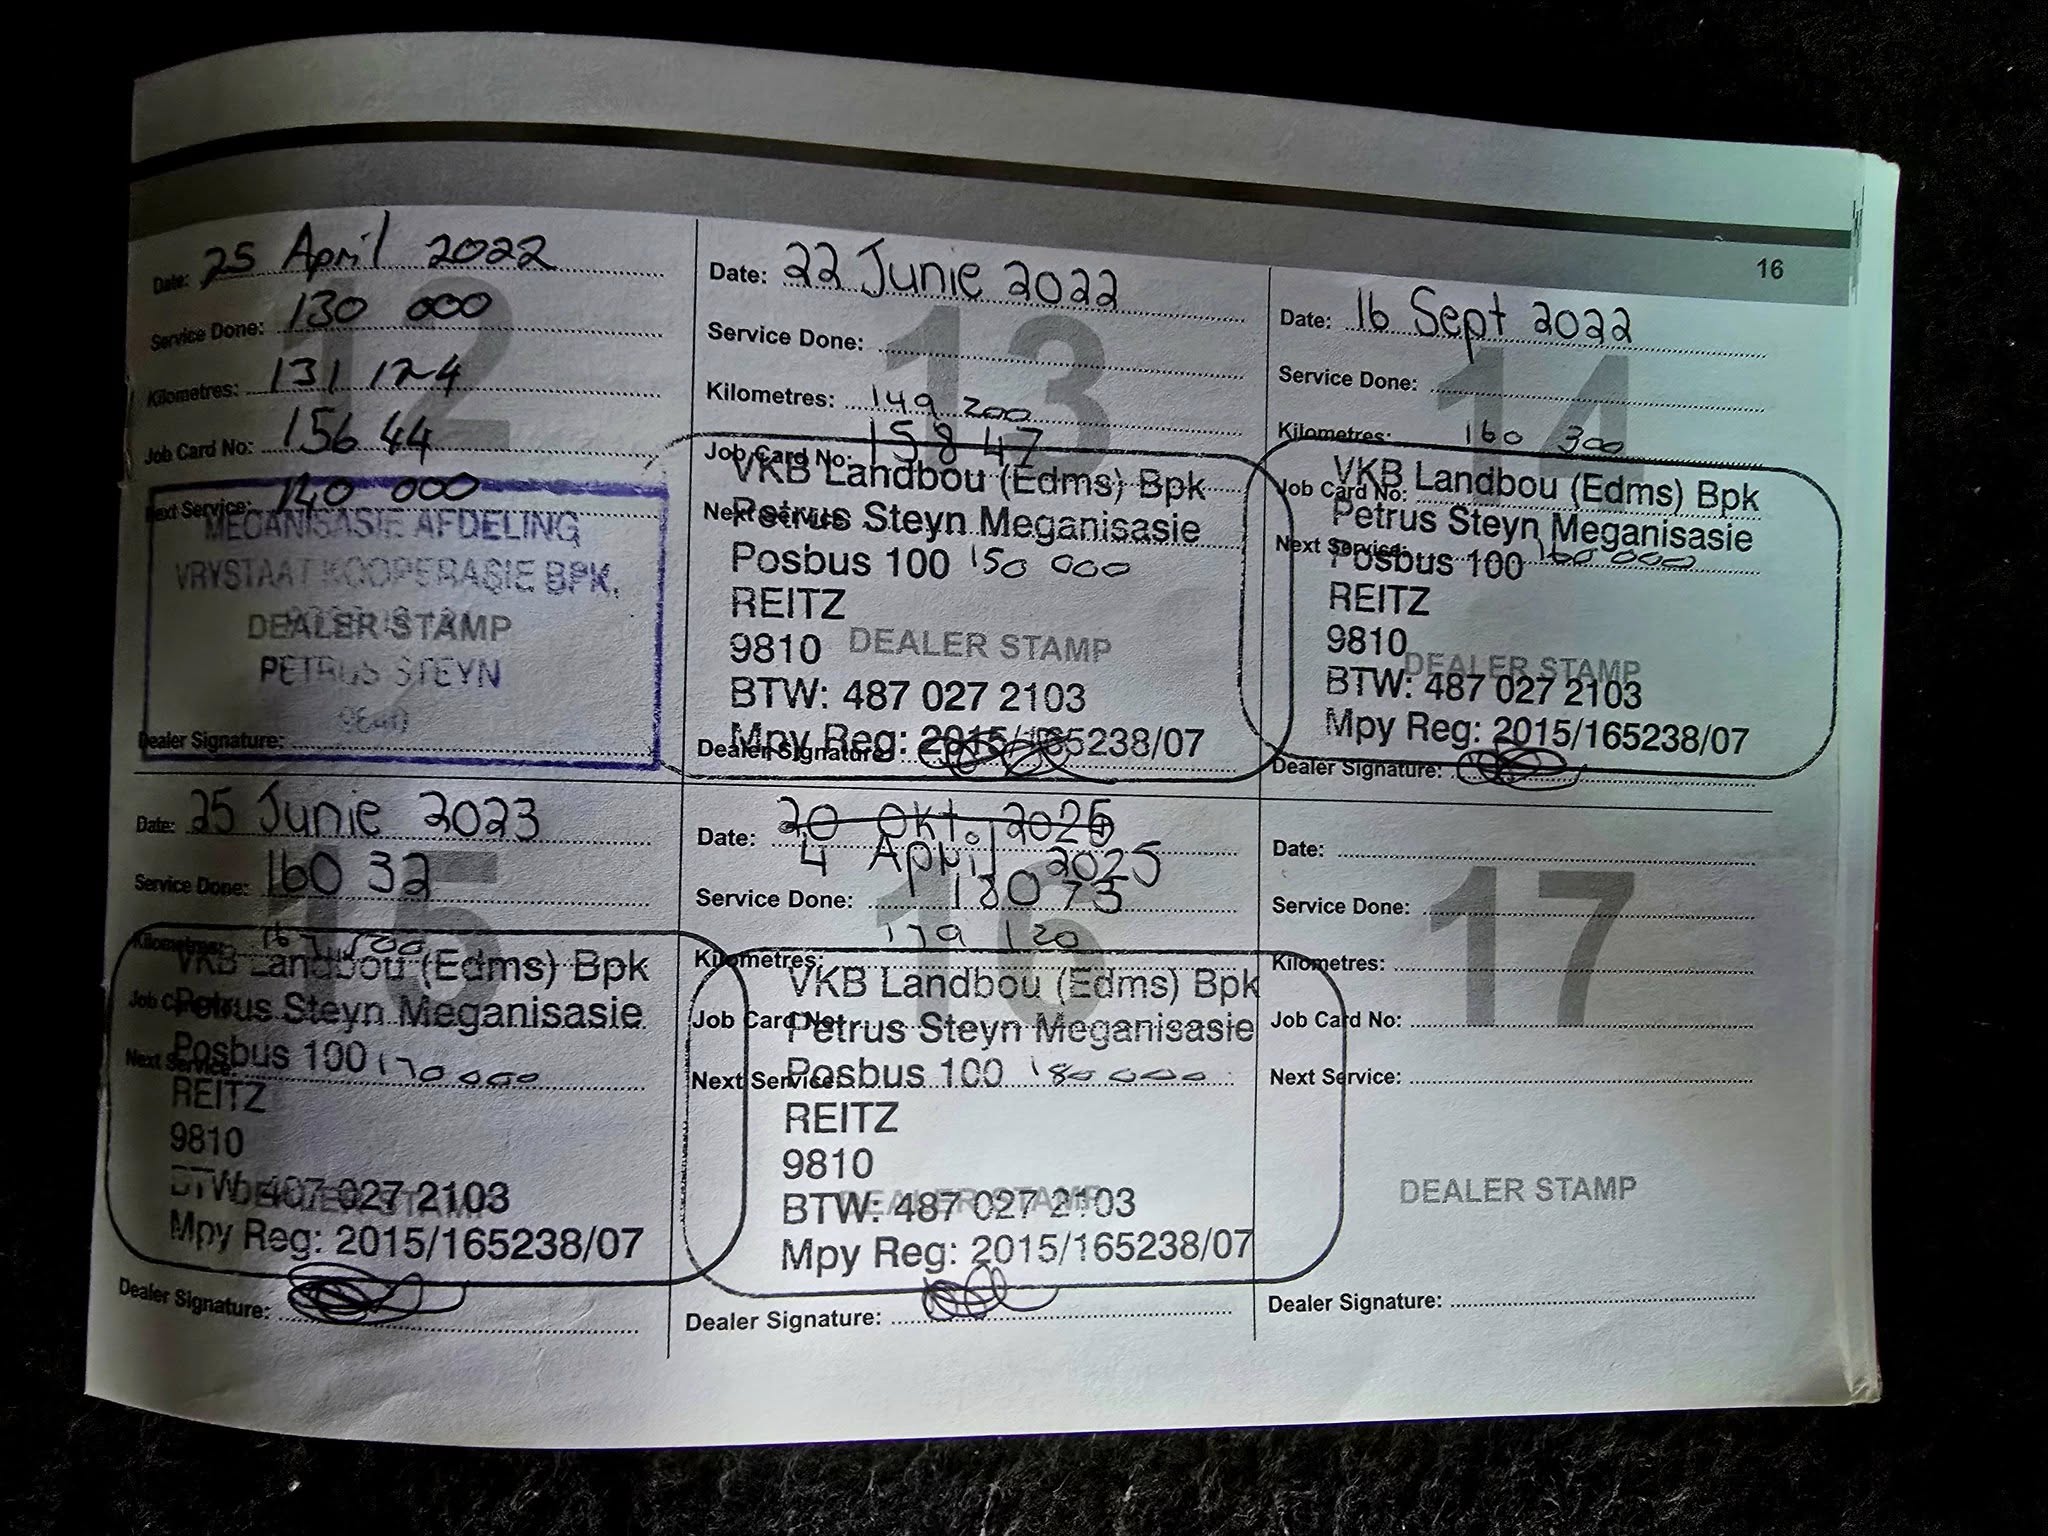 16
Date: 25 April 2022
Service Done: 130 000
Kilometres: 131 124
Job Card No: 156 44
Next Service: 140 000
12
MEGANISASIE AFDELING
VRYSTAAT KOOPERASIE BPK.
DEALER STAMP
PETRUS STEYN
Dealer Signature:
Date: 22 Junie 2022
Service Done:
13
Kilometres: 149 200
Job Card No: 158 47
VKB Landbou (Edms) Bpk
Next Service:
Petrus Steyn Meganisasie
Posbus 100 150 000
REITZ
9810 DEALER STAMP
BTW: 487 027 2103
Mpy Reg: 2015/165238/07
Dealer Signature:
Date: 16 Sept 2022
Service Done:
14
Kilometres: 160 300
VKB Landbou (Edms) Bpk
Job Card No:
Petrus Steyn Meganisasie
Next Service: 160 000
Posbus 100
REITZ
9810
DEALER STAMP
BTW: 487 027 2103
Mpy Reg: 2015/165238/07
Dealer Signature:
Date: 25 Junie 2023
Service Done: 160 32
15
Kilometres:
VKB Landbou (Edms) Bpk
Job Card No:
Petrus Steyn Meganisasie
Posbus 100 170 000
Next Service:
REITZ
9810
BTW: 487 027 2103
DEALER STAMP
Mpy Reg: 2015/165238/07
Dealer Signature:
20 Okt. 2025
Date: 4 April 2025
Service Done: 180 73
16
179 120
Kilometres:
VKB Landbou (Edms) Bpk
Job Card No:
Petrus Steyn Meganisasie
Next Service: 180 000
Posbus 100
REITZ
9810
DEALER STAMP
BTW: 487 027 2103
Mpy Reg: 2015/165238/07
Dealer Signature:
Date:
Service Done:
17
Kilometres:
Job Card No:
Next Service:
DEALER STAMP
Dealer Signature: